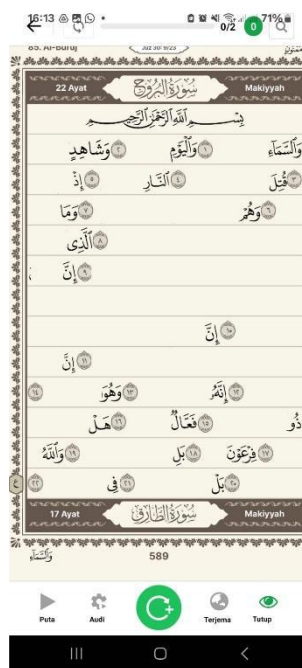 16:13 71%
0/2 0
85. Al-Buruj Juz 30
22 Ayat سُورَةُ الْبُرُوجِ Makiyyah
بِسْمِ اللَّهِ الرَّحْمَٰنِ الرَّحِيمِ
وَالسَّمَاءِ ١ وَالْيَوْمِ ٢ وَشَاهِدٍ
٣ قُتِلَ ٤ النَّارِ ٥ إِذْ
٦ وَهُمْ ٧ وَمَا
٨ الَّذِى
٩ إِنَّ
١٠ إِنَّ
١١ إِنَّ
١٢ إِنَّهُۥ ١٣ وَهُوَ ١٤
ذُو ١٥ فَعَّالٌ ١٦ هَلْ
١٧ فِرْعَوْنَ ١٨ بَلِ ١٩ وَاللَّهُ
٢٠ بَلْ ٢١ فِى ٢٢
17 Ayat سُورَةُ الطَّارِقِ Makiyyah
وَالسَّمَاءِ 589
Puta Audi Terjema Tutup